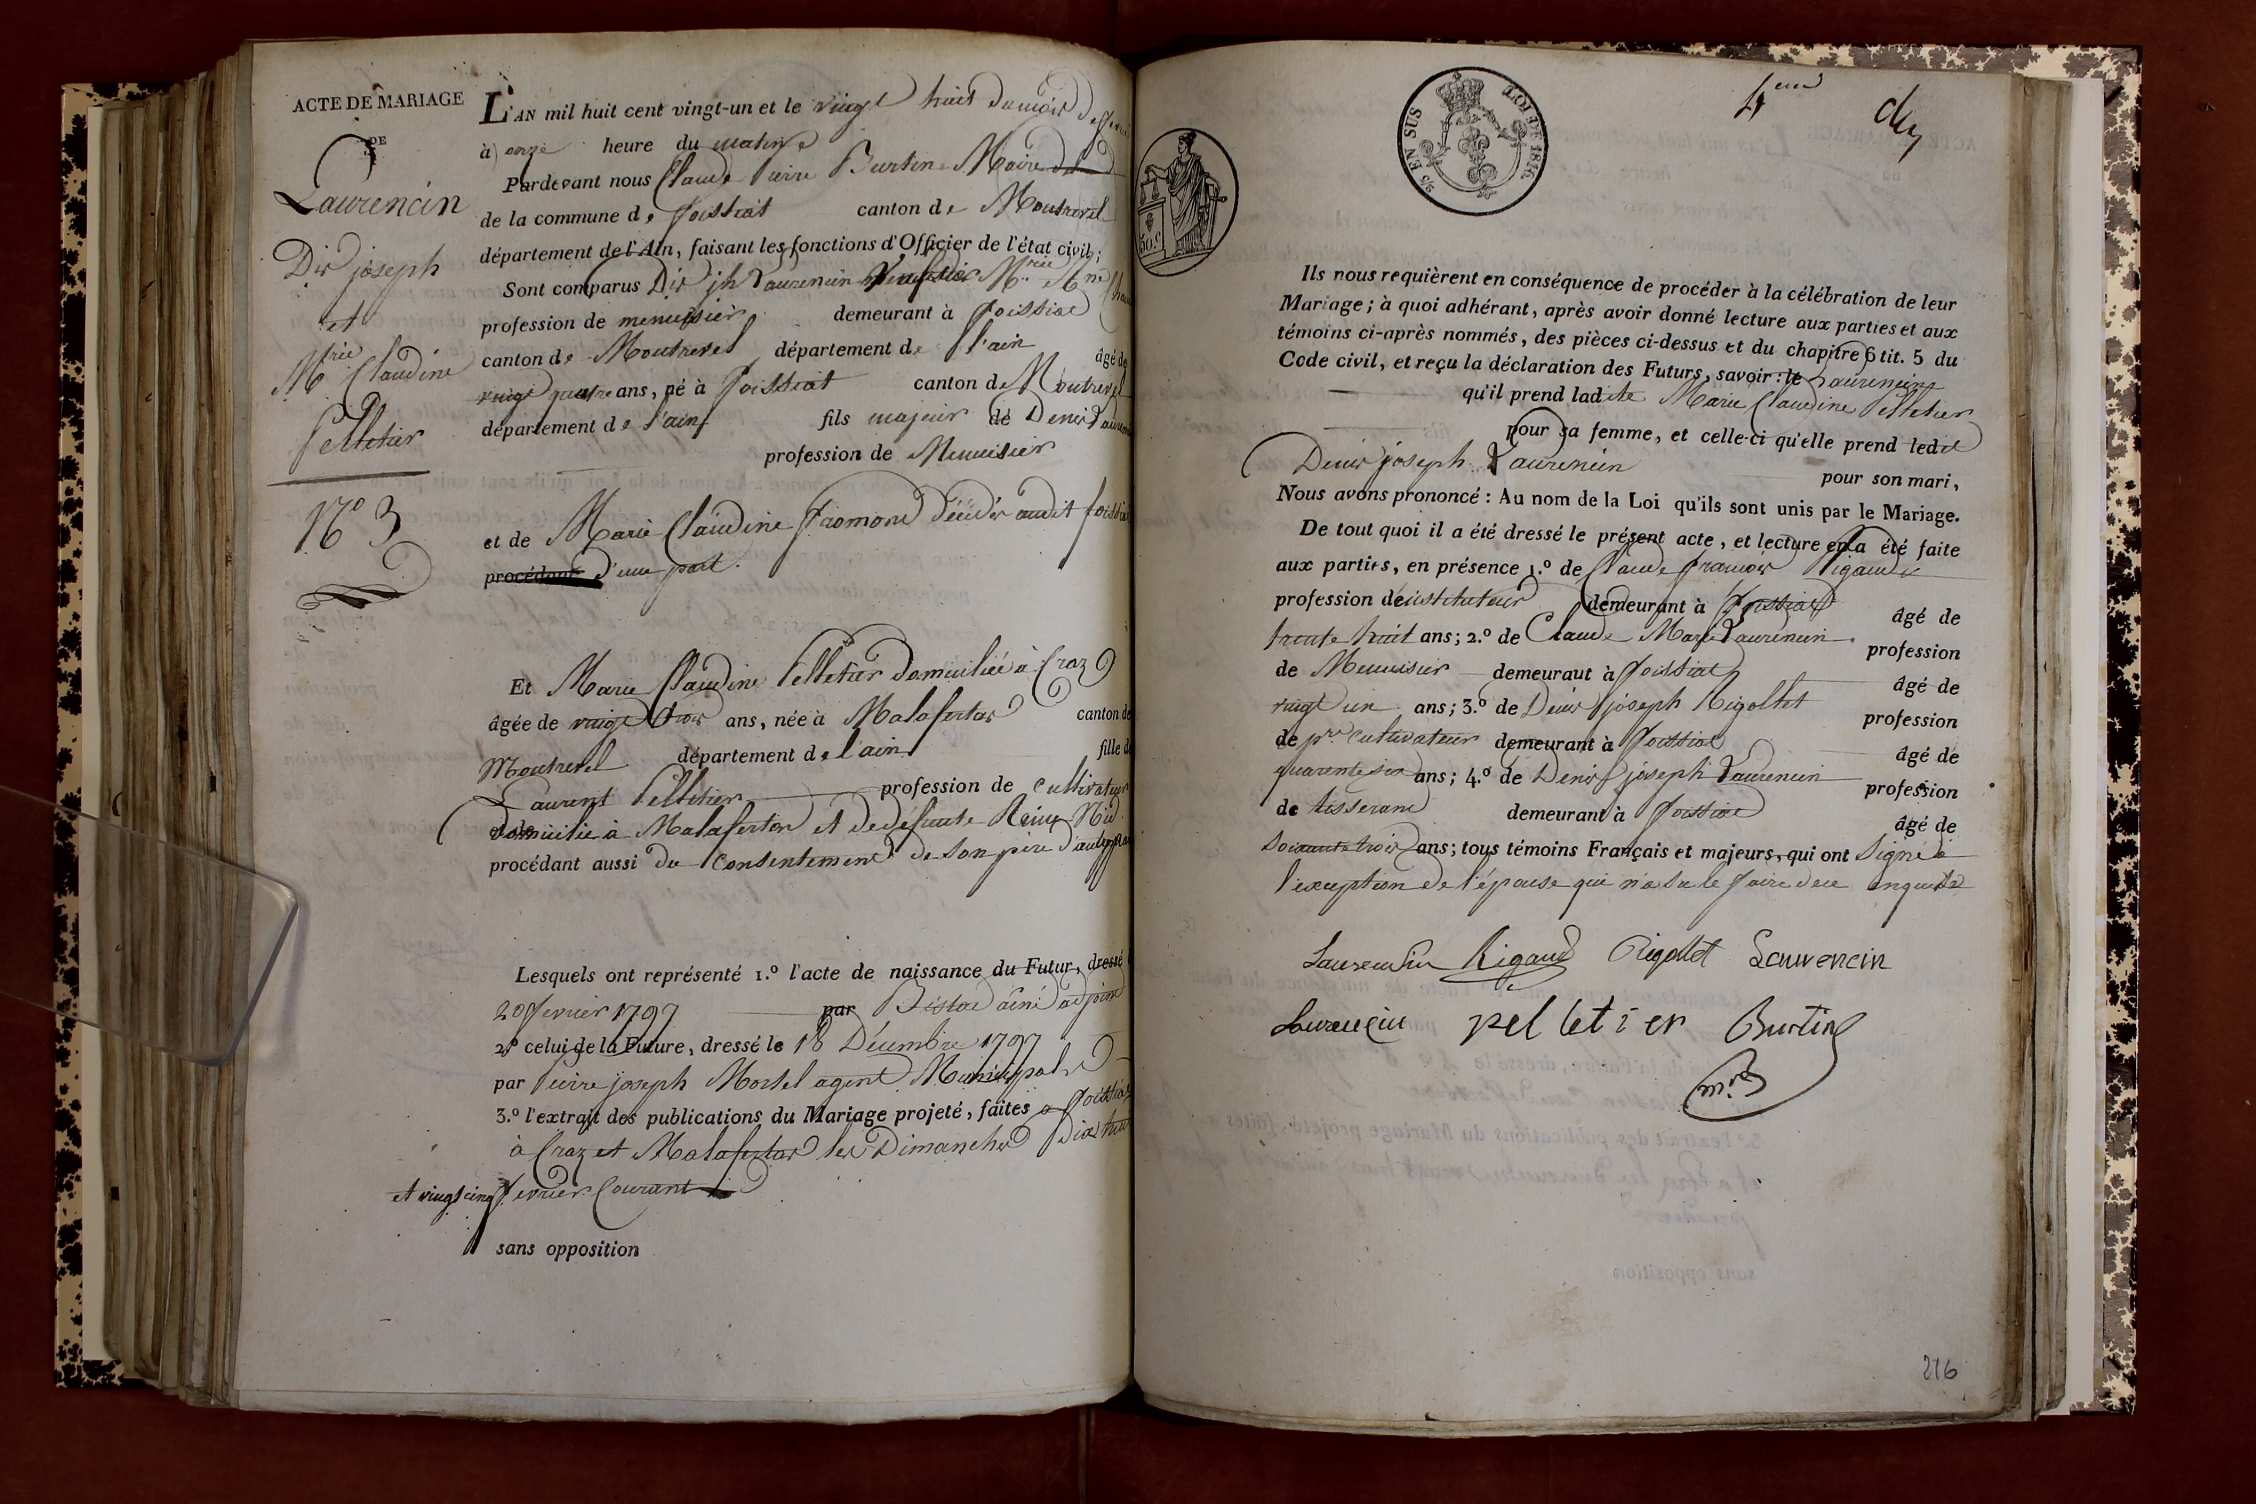 ACTE DE MARIAGE
DE
Laurencin
Dis joseph
et
Mrie Claudine
Pelletier
N.o 3
L'AN mil huit cent vingt-un et le vingt huit du mois de fevrier
à onze heure du matin
Pardevant nous Claude Pierre Burtin Maire
de la commune de foissiat canton de Montrevel
département de l'Ain, faisant les fonctions d'Officier de l'état civil;
Sont comparus Dis jh Laurencin
profession de menuisier demeurant à foissiat
canton de Montrevel département de l'ain âgé de
vingt quatre ans, né à foissiat canton de Montrevel
département de l'ain fils majeur de Denis
profession de Menuisier
et de Marie Claudine fromond décédés audit foissiat
procédant d'une part.
Et Marie Claudine Pelletier domiciliée à Craz
âgée de vingt trois ans, née à Malafretaz canton de
Montrevel département de l'ain fille de
Laurent Pelletier profession de cultivateur
domicilié à Malafretaz et de défunte Reine
procédant aussi du consentement de son père d'autre part
Lesquels ont représenté 1.º l'acte de naissance du Futur, dressé
20 fevrier 1797 par ainé adjoint
2º celui de la Future, dressé le 18 Décembre 1797
par Pierre joseph Morel agent Municipal
3.º l'extrait des publications du Mariage projeté, faites a foissiat
à Craz et Malafretaz les Dimanches dix huit
et vingt cinq fevrier Courant
sans opposition
5/5 EN SUS
LOI DE 1816.
50.c
Ils nous requièrent en conséquence de procéder à la célébration de leur
Mariage; à quoi adhérant, après avoir donné lecture aux parties et aux
témoins ci-après nommés, des pièces ci-dessus et du chapitre 6 tit. 5 du
Code civil, et reçu la déclaration des Futurs, savoir: le Laurencin
qu'il prend ladite Marie Claudine Pelletier
pour sa femme, et celle-ci qu'elle prend ledit
Denis joseph Laurencin pour son mari,
Nous avons prononcé: Au nom de la Loi qu'ils sont unis par le Mariage.
De tout quoi il a été dressé le présent acte, et lecture en a été faite
aux parties, en présence 1.º de Claude françois Rigaud
profession de instituteur demeurant à foissiat âgé de
trente huit ans; 2.º de Claude Marie Laurencin profession
de Menuisier demeurant à foissiat âgé de
vingt un ans; 3.º de Denis joseph Rigollet profession
de pre cultivateur demeurant à foissiat âgé de
quarente six ans; 4.º de Denis joseph Laurencin profession
de tisserand demeurant à foissiat âgé de
soixante trois ans; tous témoins Français et majeurs, qui ont signé à
l'exception de l'épouse qui n'a su le faire de ce enquise
Laurencin Rigaud Rigollet Lauvencin
Laurencin pelletier Burtin
mre
216